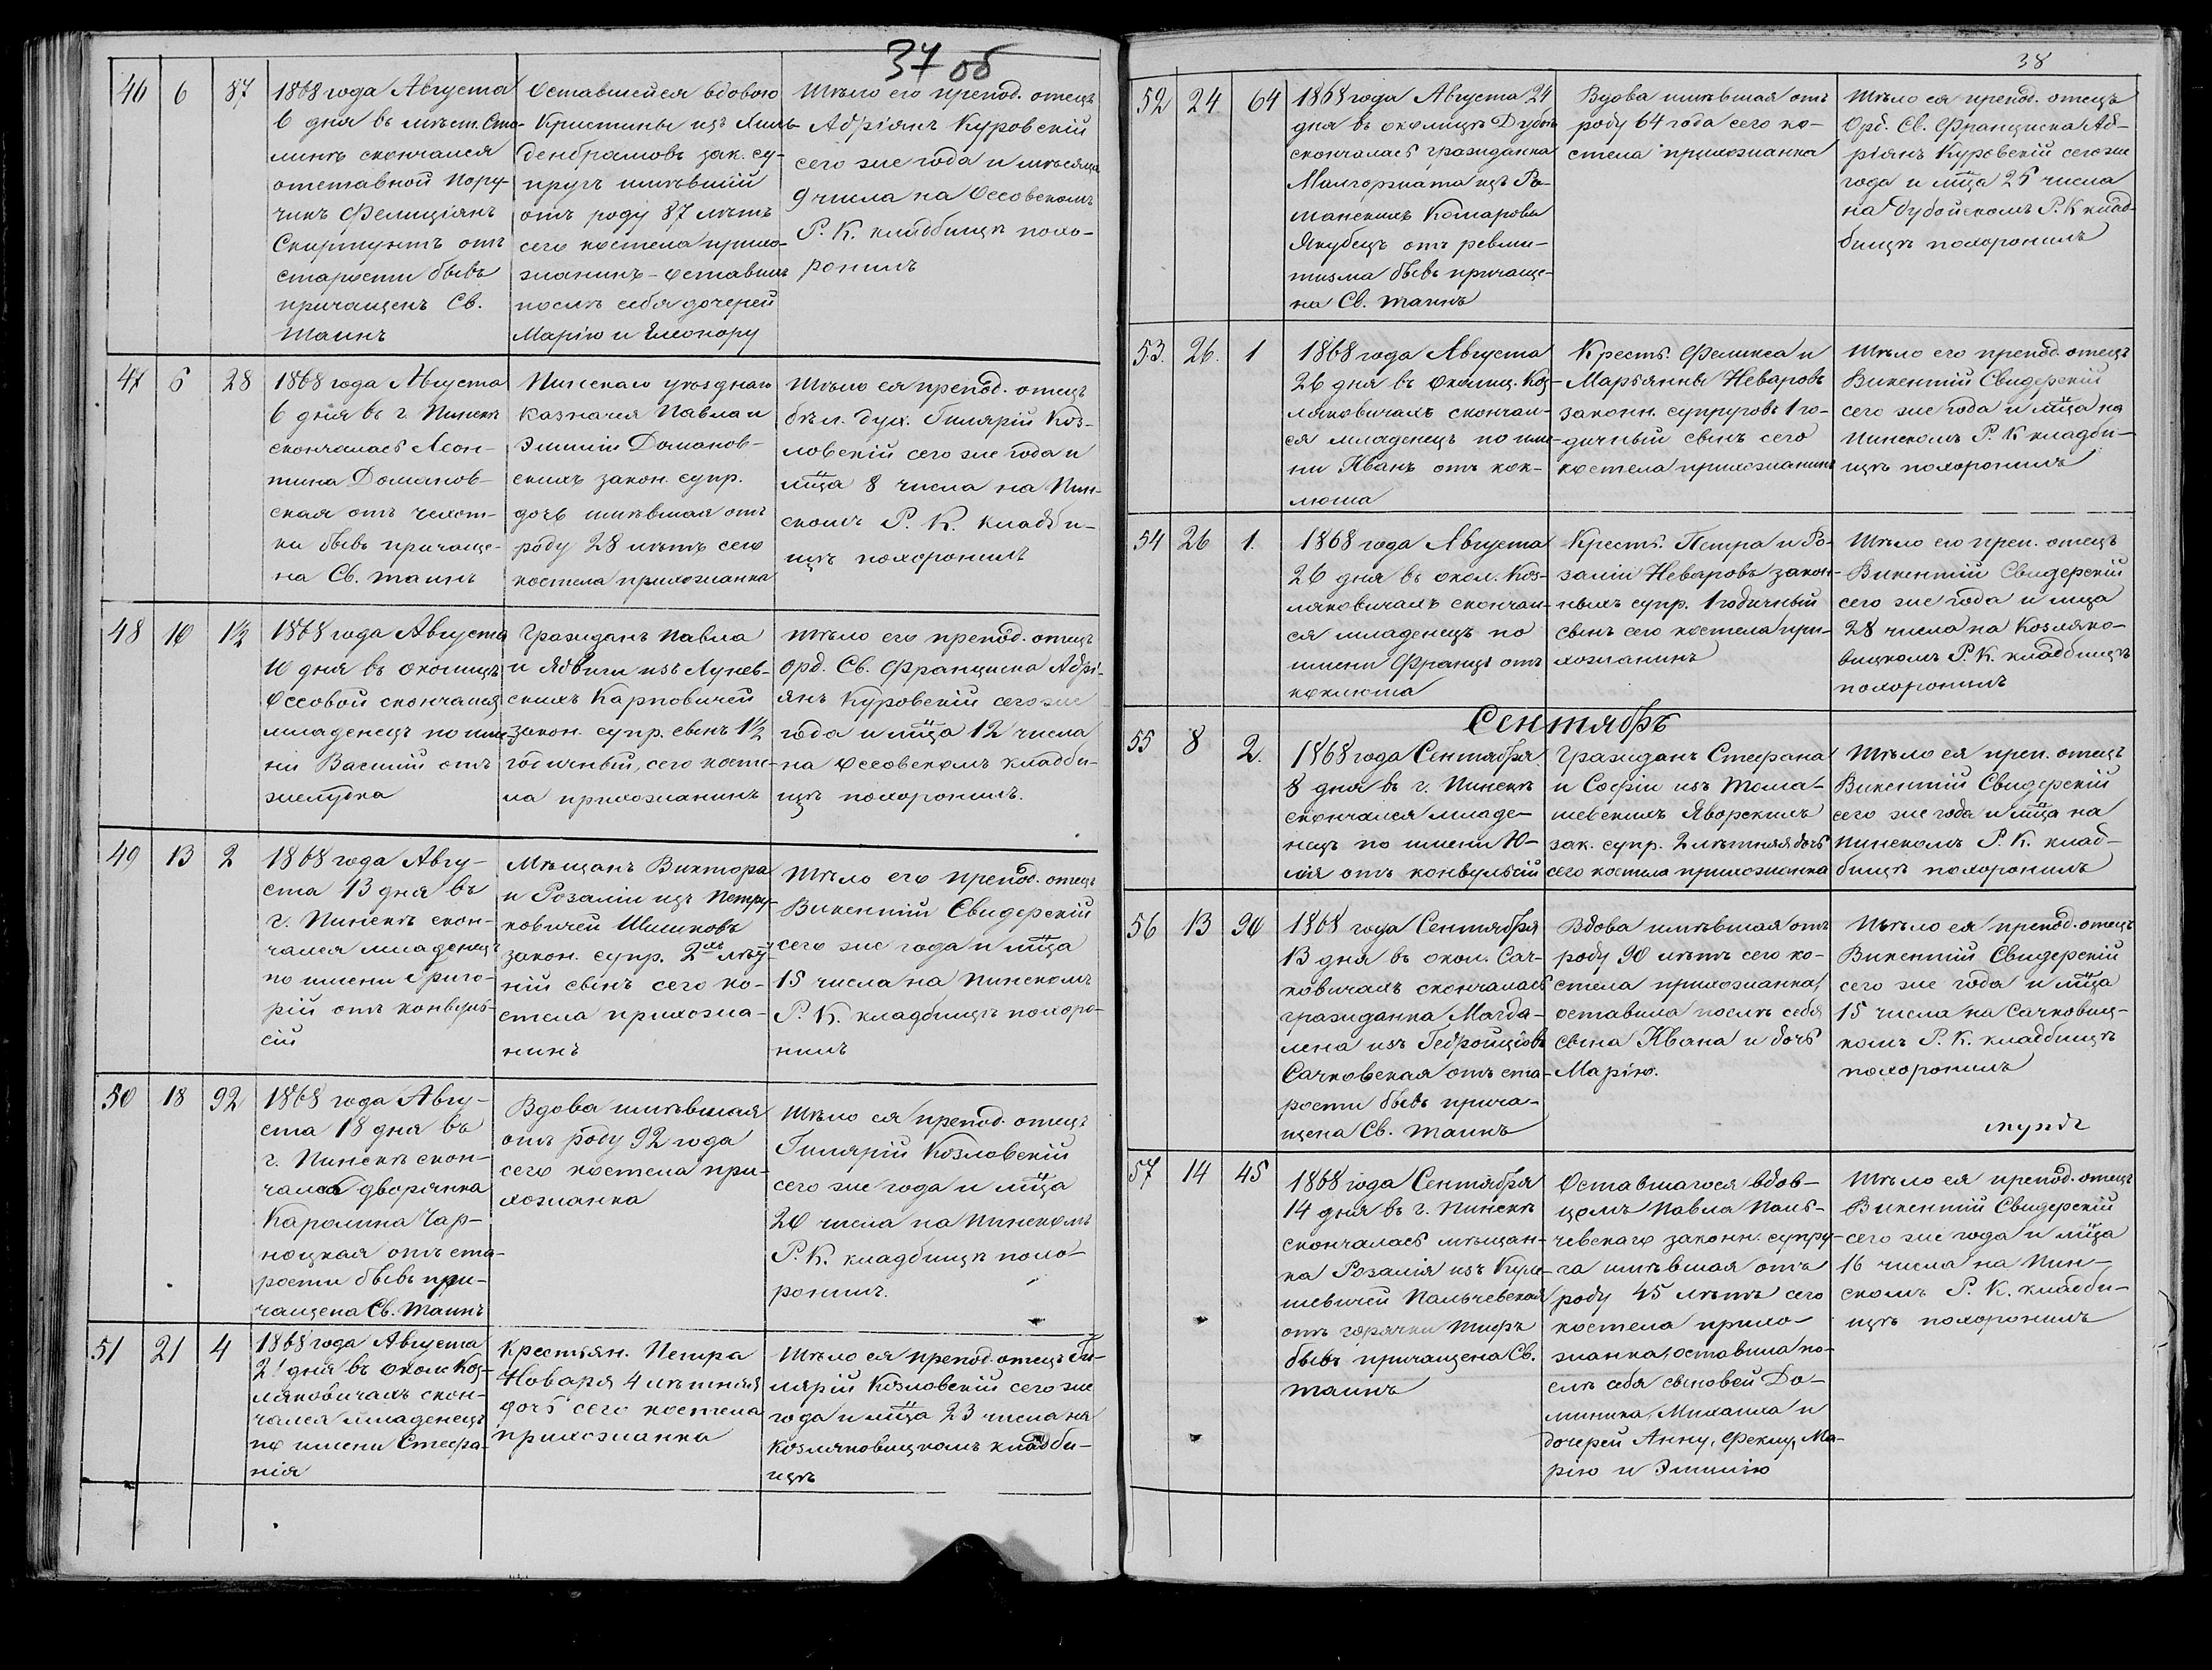 37 об
46 6 87
1868 года Августа
6 дня въ мѣст. Сто-
линѣ скончался
отставной Пору-
чикъ Фелиціянъ
Скирмунтъ отъ
старости бывъ
причащенъ Св.
Таинъ
Оставшейся вдовою
Кристины изъ
зак. су-
пругъ имѣвшій
отъ роду 87 лѣтъ
сего костела прихо-
жанинъ - оставилъ
послѣ себя дочерей
Марію и Элеонору
Тѣло его препод. отецъ
Адріянъ Куровскій
сего же года и мѣсяца
9 числа на Оссовскомъ
Р. К. кладбищѣ похо-
ронилъ
47 6 28
1868 года Августа
6 дня въ г. Пинскѣ
скончалась Леон-
тина Доманов-
ская отъ чахот-
ки бывъ причаще-
на Св. таинъ
Пинскаго уѣзднаго
казначея Павла и
Эмиліи Доманов-
скихъ закон. супр.
дочь имѣвшая отъ
роду 28 лѣтъ сего
костела прихожанка
Тѣло ея препод. отецъ
бѣл. дух. Гилярій Коз-
ловскій сего же года и
мца 8 числа на Пин-
скомъ Р. К. кладби-
щѣ похоронилъ
48 10 1½
1868 года Августа
10 дня въ околицѣ
Оссовой скончался
младенецъ по име-
ни Василій отъ
желудка
Гражданъ Павла
и Ядвиги изъ Лунев-
скихъ Карповичей
закон. супр. сынъ 1½
годичный, сего косте-
ла прихожанинъ
Тѣло его препод. отецъ
орд. Св. Франциска Адрі-
янъ Куровскій сего же
года и мца 12 числа
на Оссовскомъ кладби-
щѣ похоронилъ.
49 13 2
1868 года Авгу-
ста 13 дня въ
г. Пинскѣ скон-
чался младенецъ
по имени Григо-
рій отъ конвуль-
сій
Мѣщанъ Виктора
и Розаліи изъ Петру-
ковичей Шишковъ
закон. супр. 2хъ лѣт-
ній сынъ сего ко-
стела прихожа-
нинъ
Тѣло его препод. отецъ
Викентій Свидерскій
сего же года и мца
15 числа на Пинскомъ
Р. К. кладбищѣ похоро-
нилъ
50 18 92
1868 года Авгу-
ста 18 дня въ
г. Пинскѣ скон-
чалась дворянка
Каролина Чар-
ноцкая отъ ста-
рости бывъ при-
чащена Св. Таинъ
Вдова имѣвшая
отъ роду 92 года
сего костела при-
хожанка
Тѣло ея препод. отецъ
Гилярій Козловскій
сего же года и мца
20 числа на Пинскомъ
Р. К. кладбищѣ похо-
ронилъ.
51 21 4
1868 года Августа
21 дня въ окол. Коз-
ляковичахъ скон-
чался младенецъ
по имени Стефа-
нія
Крестьян. Петра
Новаря 4 лѣтняя
дочь сего костела
прихожанка
Тѣло ея препод. отецъ Ги-
лярій Козловскій сего же
года и мца 23 числа на
Козляковицкомъ кладби-
щѣ
38
52 24 64
1868 года Августа 24
дня въ околицѣ Дубой
скончалась гражданка
Малгоржата изъ Ро-
манскихъ Комарова
Якубецъ отъ ревма-
тизма бывъ причаще-
на Св. таинъ
Вдова имѣвшая отъ
роду 64 года сего ко-
стела прихожанка
Тѣло ея препод. отецъ
Орд. Св. Франциска Ад-
ріянъ Куровскій сего же
года и мца 25 числа
на Дубойскомъ Р. К. клад-
бищѣ похоронилъ
53. 26. 1
1868 года Августа
26 дня въ околиц. Коз-
ляковичахъ скончал-
ся младенецъ по име-
ни Иванъ отъ кок-
люша
Крестъ. Феликса и
Марьянны Неваровъ
законн. супруговъ 1 го-
дичный сынъ сего
костела прихожанинъ
Тѣло его препод. отецъ
Викентій Свидерскій
сего же года и мца на
Пинскомъ Р. К. кладби-
щѣ похоронилъ
54 26 1.
1868 года Августа
26 дня въ окол. Коз-
ляковичахъ скончал-
ся младенецъ по
имени Францъ отъ
коклюша
Крестъ. Петра и Ро-
заліи Неваровъ закон-
ныхъ супр. 1 годичный
сынъ сего костела при-
хожанинъ
Тѣло его преп. отецъ
Викентій Свидерскій
сего же года и мца
28 числа на Козляко-
вицкомъ Р. К. кладбищѣ
похоронилъ
Сентябрь
55 8 2.
1868 года Сентября
8 дня въ г. Пинскѣ
скончался младе-
нецъ по имени Ю-
лія отъ конвульсій
Гражданъ Стефана
и Софіи изъ Тома-
шевскихъ Яворскихъ
зак. супр. 2 лѣтняя дочь
сего костела прихожанка
Тѣло ея преп. отецъ
Викентій Свидерскій
сего же года и мца на
Пинскомъ Р. К. клад-
бищѣ похоронилъ
56 13 90
1868 года Сентября
13 дня въ окол. Сач-
ковичахъ скончалась
гражданка Магда-
лена изъ Гедройцовъ
Сачковская отъ ста-
рости бывъ прича-
щена Св. таинъ
Вдова имѣвшая отъ
роду 90 лѣтъ сего ко-
стела прихожанка,
оставила послѣ себя
сына Ивана и дочь
Марію.
Тѣло ея препод. отецъ
Викентій Свидерскій
сего же года и мца
15 числа на Сачковиц-
комъ Р. К. кладбищѣ
похоронилъ
57 14 45
1868 года Сентября
14 дня въ г. Пинскѣ
скончалась мѣщан-
ка Розалія изъ Куле-
шевичей Пальчевская
отъ горячки тифъ
бывъ причащена Св.
таинъ
Оставшагося вдов-
цомъ Павла Паль-
чевскаго законн. супру-
га имѣвшая отъ
роду 45 лѣтъ сего
костела прихо-
жанка, оставила по-
слѣ себя сыновей До-
миника, Михаила и
дочерей Анну, Феклу, Ма-
рію и Эмилію
Тѣло ея препод. отецъ
Викентій Свидерскій
сего же года и мца
16 числа на Пин-
скомъ Р. К. кладби-
щѣ похоронилъ